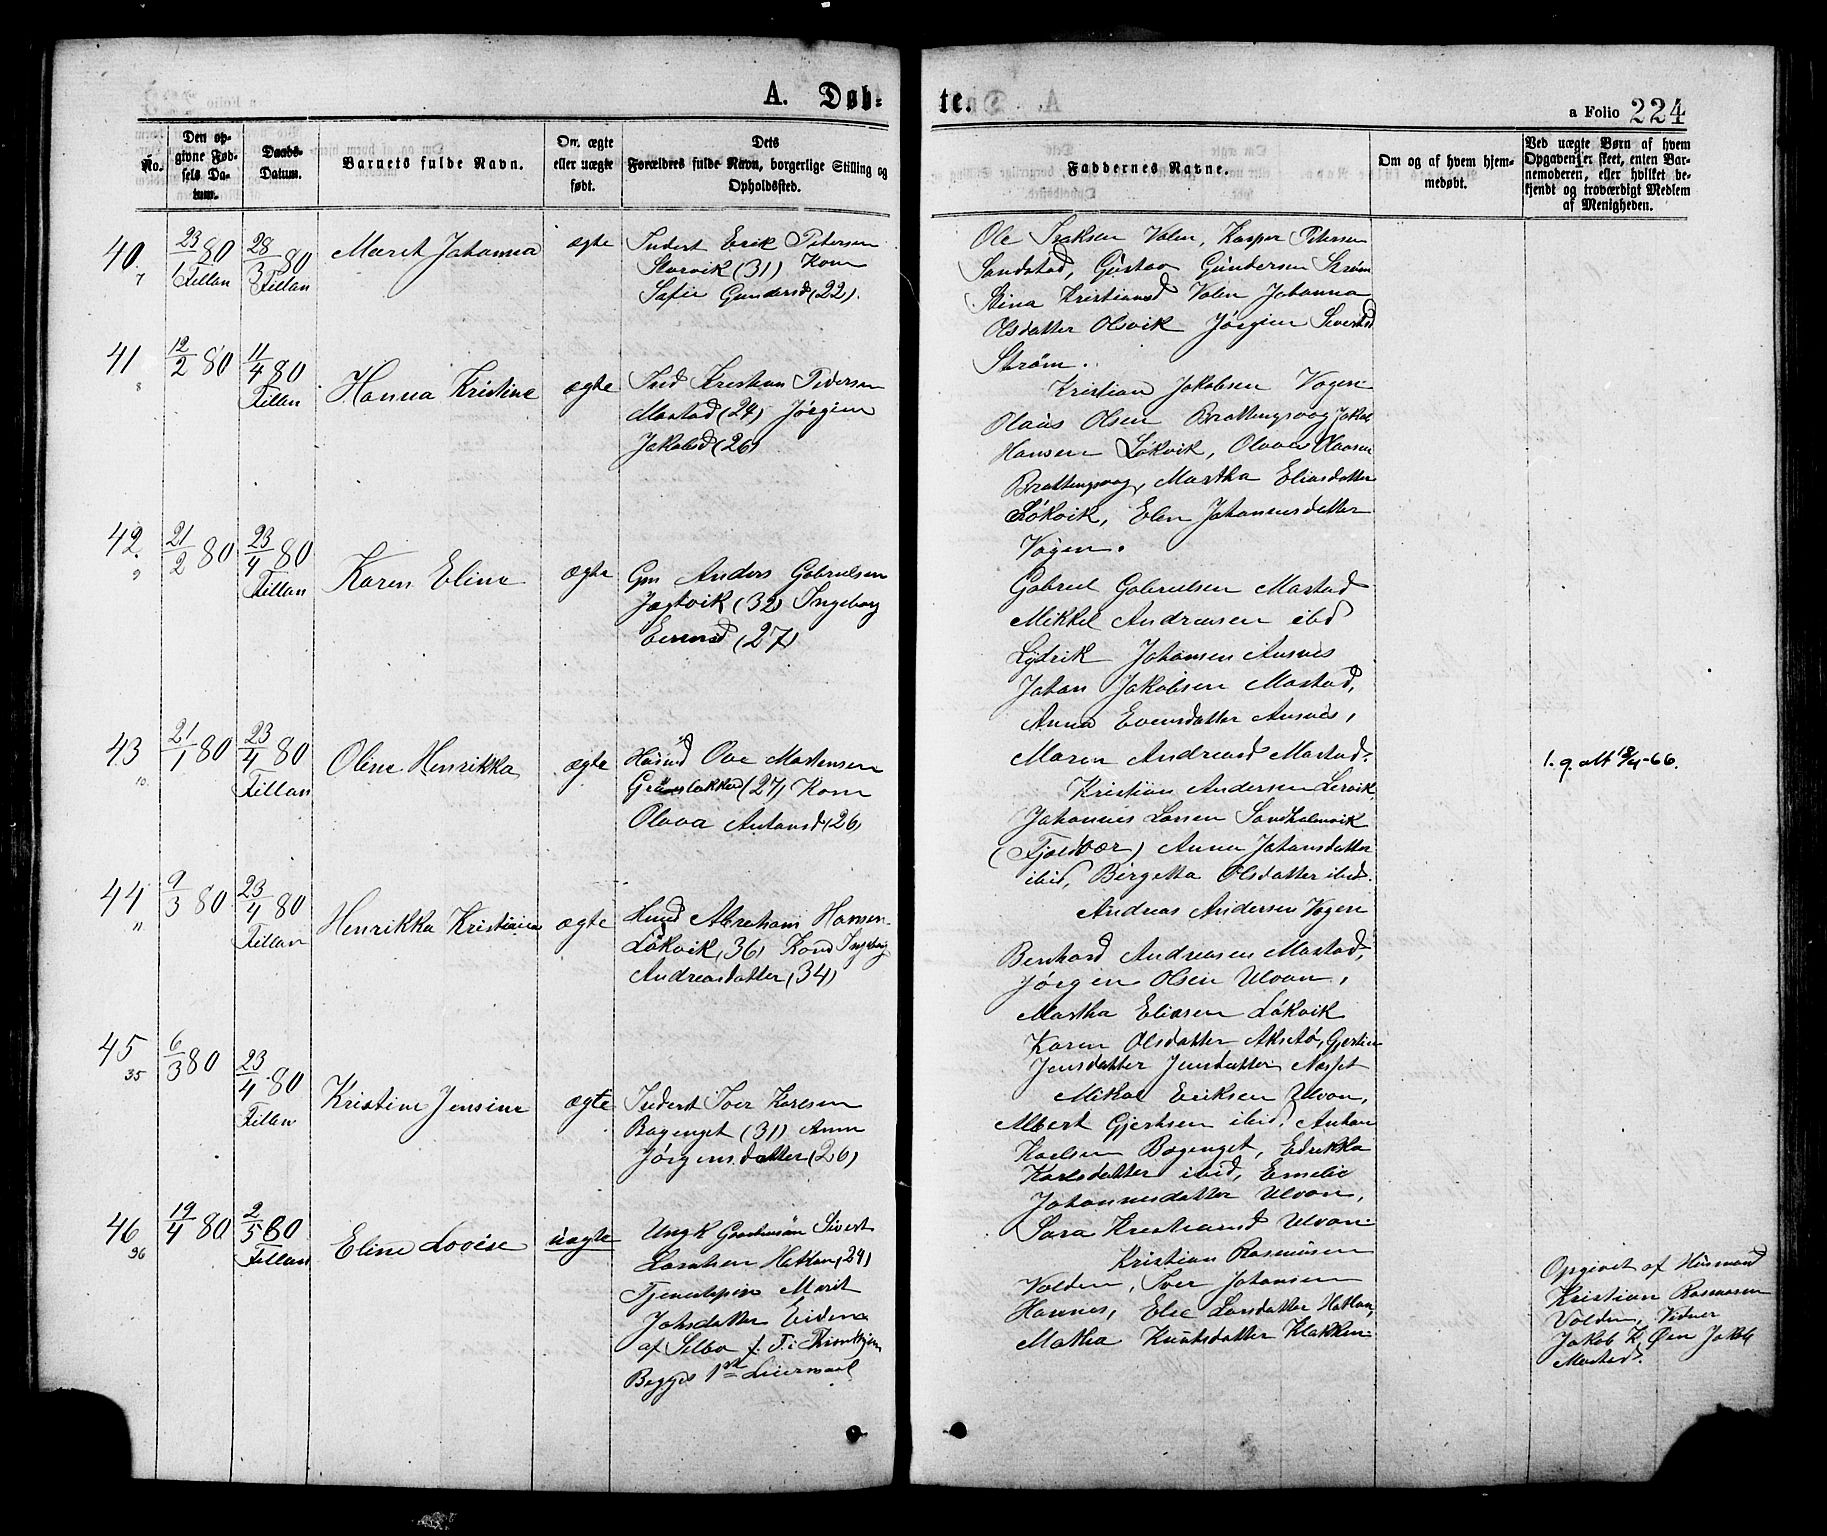 A. Døb-
te.
a Folio 224
No.
Den op-
givne Fød-
sels Da-
tum.
Daabs-
Datum.
Barnets fulde Navn.
Om ægte
eller uægte
født.
Dets
Forældres fulde Navn, borgerlige Stilling og
Opholdssted.
Faddernes Navne.
Om og af hvem hjem-
medøbt.
Ved uægte Børn af hvem
Opgaven er skeet, enten Bar-
nemoderen, eller hvilket be-
kjendt og troværdigt Medlem
af Menigheden.
40
7
23/1 80
Fillan
28/3 80
Fillan
Maret Johanna
ægte
Inderst Erik Petersen
Storvik (31) Kone
Sofie Gundersd (22).
Ole Isaksen Valen, Kasper Petersen
Sandstad, Gustav Gundersen Strøm
Stina Kristiansd Valen Johanna
Olsdatter Olsvik Jørgine Sivertsd
Strøm.
41
8
12/2 80
11/4 80
Fillan
Hanna Kristine
ægte
Ind Kristian Pedersen
Mastad (24) Jørgine
Jakobsd (26)
Kristian Jakobsen Vågen
Olaus Olsen Brattingsvog Jakob
Hansen Løkvik, Olava Klaasen
Brattingsvog, Martha Eliasdatter
Løkvik, Elen Johannesdatter
Vågen.
42
9
21/2 80
23/4 80
Fillan
Karen Eline
ægte
Gm Anders Gabrielsen
Jægtvik (32) Ingeborg
Evensd (27)
Gabriel Gabrielsen Mastad
Mikkel Andreasen ibd
Lydrik Johansen Ansnes
Johan Jakobsen Mastad,
Anna Evensdatter Ansnes,
Maren Andreasd Mastad.
43
10
21/1 80
23/4 80
Fillan
Oline Henrikka
ægte
Husmd Ove Mortensen
(27) Kone
Olava Antonsd (26)
Kristian Andersen Lervik,
Johannes Larsen Sandholmvik
(Fjeldvær) Anna Johansdatter
ibid, Birgetta Olsdatter ibid.
44
11
9/3 80
23/4 80
Fillan
Henrikka Kristiania
ægte
Husmd Abraham Hansen
Løkvik (36) Kone Ingeborg
Andreasdatter (34)
Andreas Andersen Vågen
Bernhard Andreasen Mastad,
Jørgen Olsen Ulvan,
Martha Eliasen Løkvik
Karen Olsdatter Aksetø, Gjertine
Jensdatter Jensdatter Næsset
45
35
6/3 80
23/4 80
Fillan
Kristine Jensine
ægte
Inderst Iver Karlsen
Bagenget (31) Anne
Jørgensdatter (26)
Mikal Eriksen Ulvan,
Albert Gjertsen ibid. Anton
Karlsen Bagenget, Edrikka
Karlsdatter ibid, Emelie
Johannesdatter Ulvan,
Sara Kristiansd Ulvan.
46
36
19/4 80
2/5 80
Fillan
Eline Lovise
uægte
Ungk Gaardmsøn Sivert
Larsen Hattan (29)
Tjenestepige Marit
Johsdatter Eidena
af Selbo f. T. i Trondhjem
Begges 1ste Leiermaal
Kristian Rasmusen
Volden, Iver Johansen
Hamnes, Else Larsdatter Hattan,
Mathea Knutsdatter Klakken.
Opgivet af Husmand
Kristian Rasmusen
Volden, Vidner
Jakob K. Øien Jakob
Mastad.